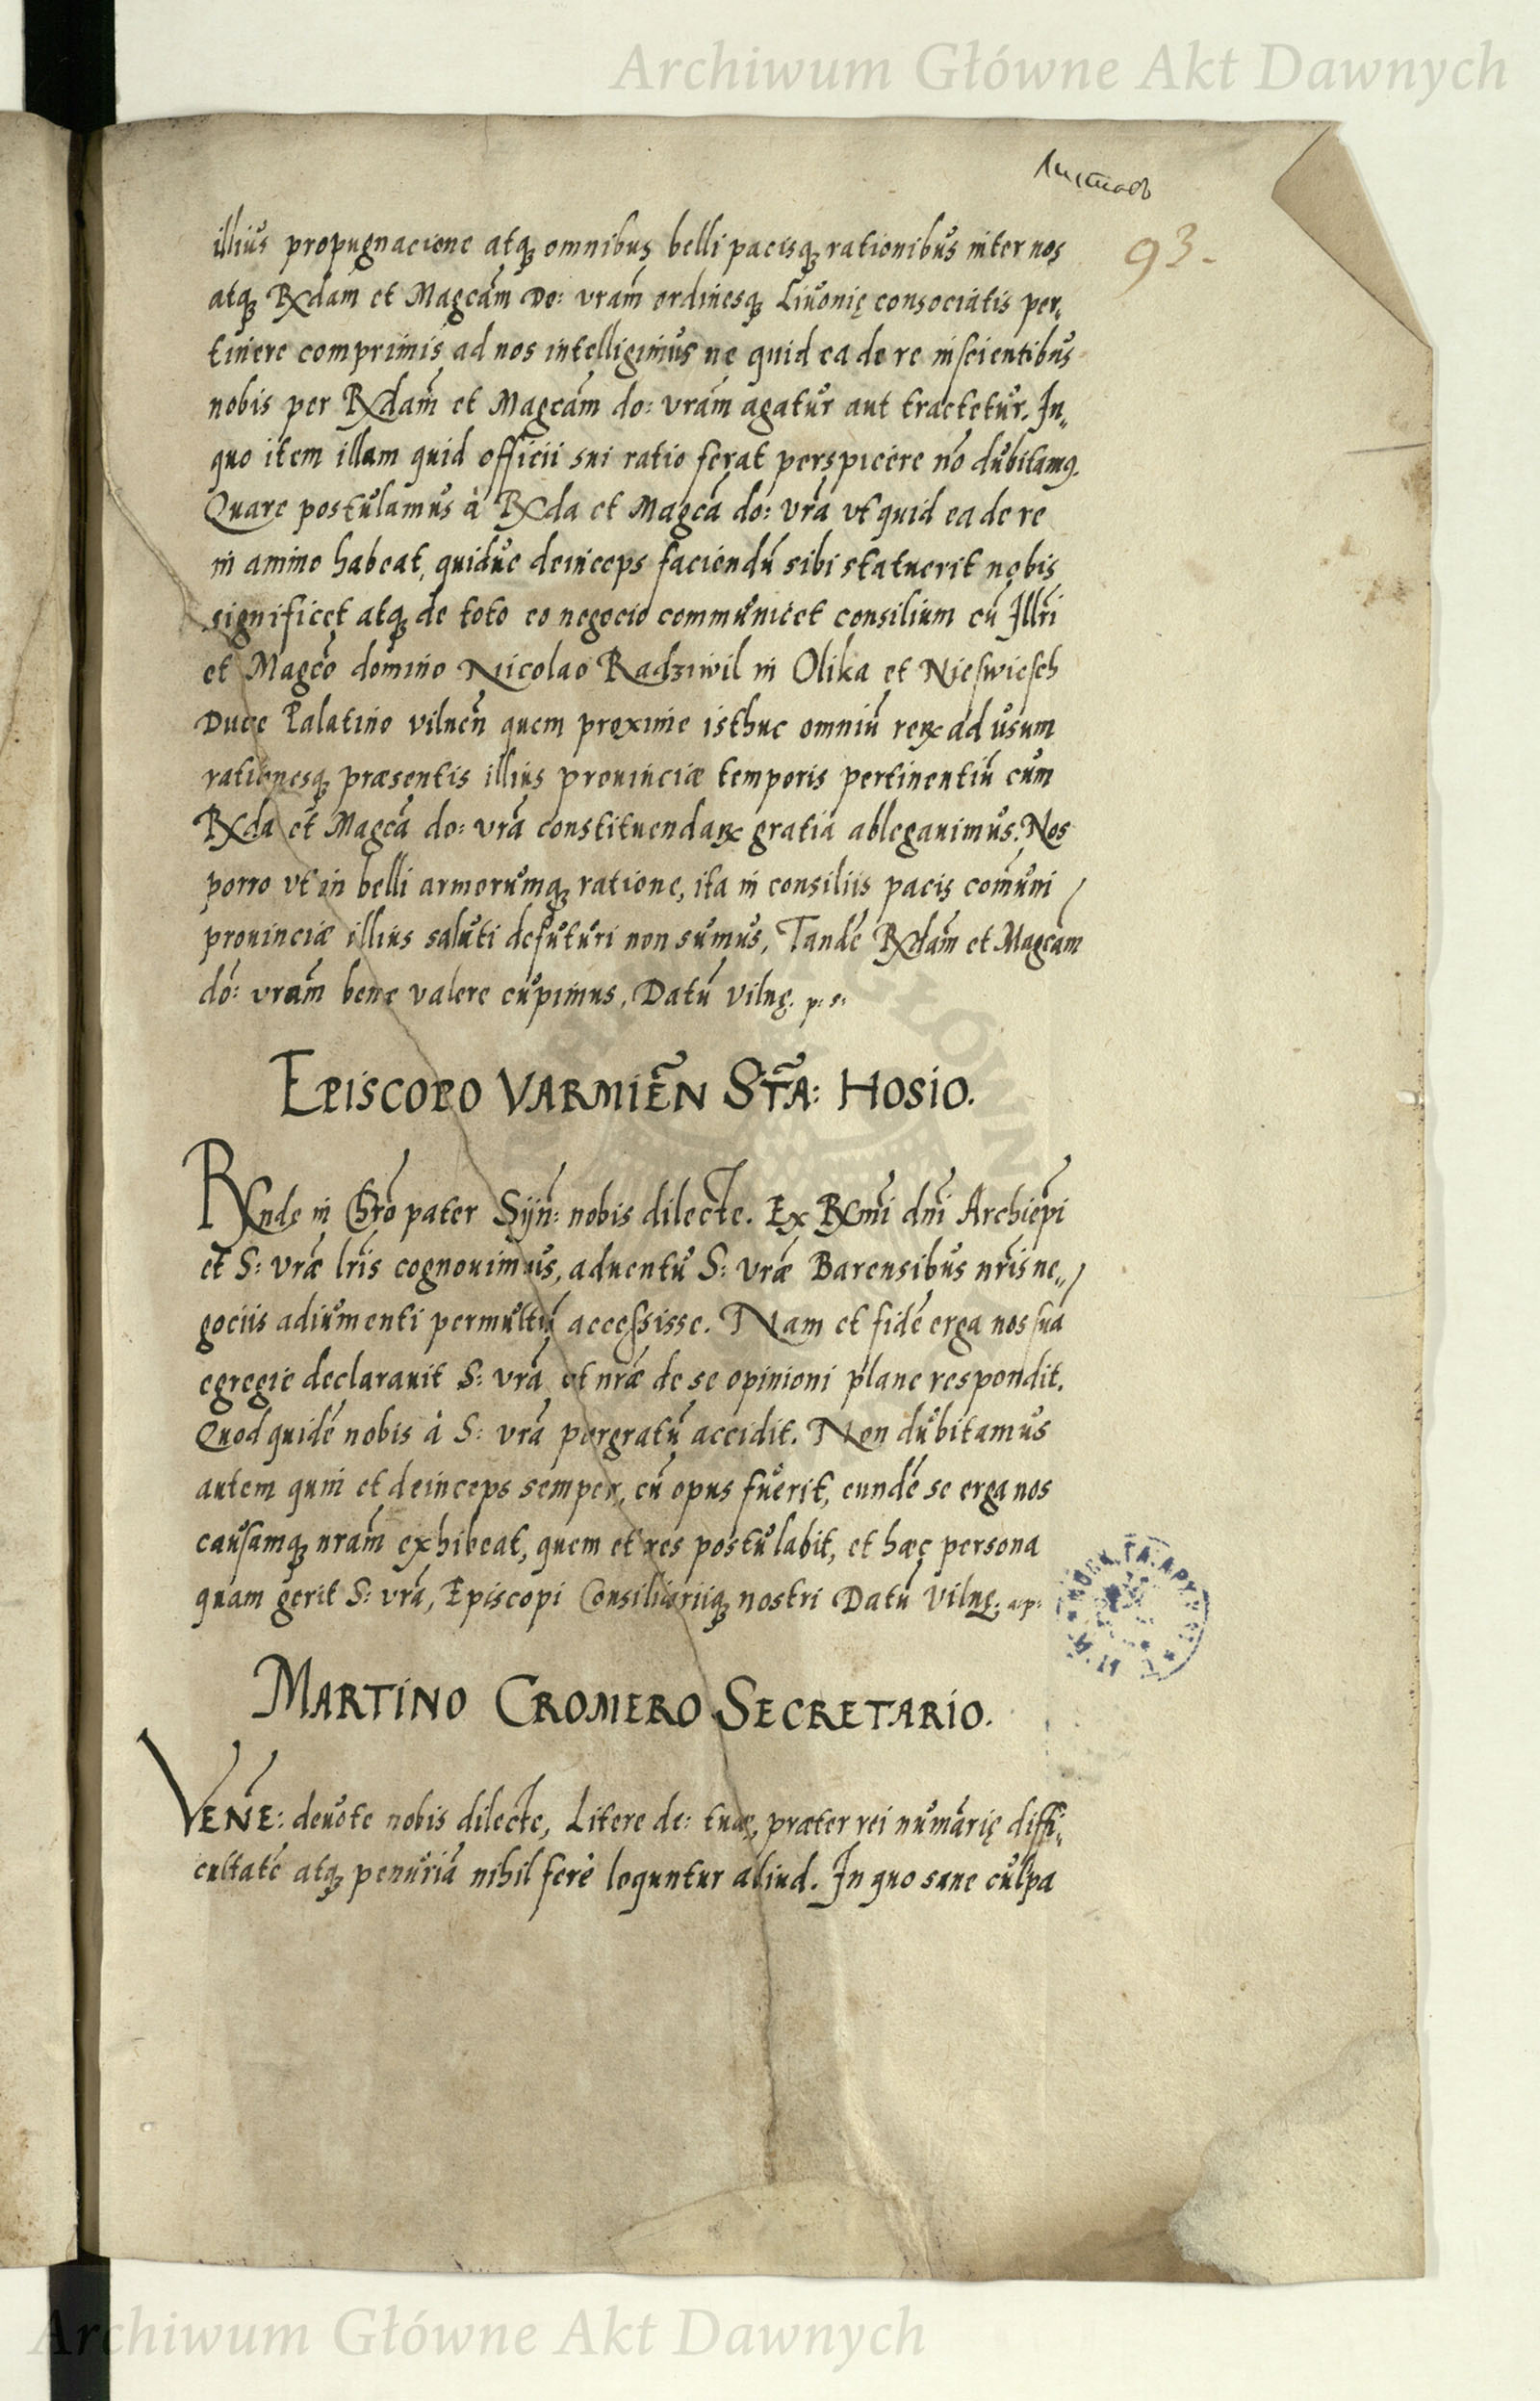 Archiwum Główne Akt Dawnych
Листовъ
93.
illius propugnacione atq; omnibus belli pacisq; rationibus inter nos
atq; Rdam et Magcam Do: vram ordinesq; Livonię consociatis per„
tinere comprimis ad nos intelligimus ne quid ea de re inscientibus
nobis per Rdam et Magcam do: vram agatur aut tractetur. In„
quo item illam quid officii sui ratio ferat perspicere nō dubitamus.
Quare postulamus à Rda et Magca do: vra vt quid ea de re
in animo habeat, quidue deinceps faciendū sibi statuerit nobis
significet atq; de toto eo negocio communicet consilium cū Illri
et Magco domino Nicolao Radziwil in Olika et Nieswiesch
Duce Palatino vilnen̄ quem proxime isthuc omniū rerꝝ ad usum
rationesq; præsentis illius prouinciæ temporis pertinentiū cum
Rda et Magca do: vra constituendarꝝ gratia ablegauimus. Nos
porro vt in belli armorumq; ratione, ita in consiliis pacis comūni
prouinciæ illius saluti defuturi non sumus, Tandē Rdam et Magcam
do: vram bene valere cupimus. Datū vilnę. p: s:
EPISCOPO VARMIEÑ STÃ: HOSIO.
Rnde in Chro pater Syn: nobis dilecte. Ex Rmi dni Archiepi
et S: vræ lris cognouimus, aduentū S: vræ Barensibus nris ne„
gociis adiumenti permultū accessisse. Nam et fidē erga nos sua
egregie declarauit S: vra et nræ de se opinioni plane respondit.
Quod quidē nobis à S: vra pergratū accidit. Non dubitamus
autem quin et deinceps semper, cū opus fuerit, eundē se erga nos
causamq; nram exhibeat, quem et res postulabit, et hæc persona
quam gerit S: vra, Episcopi Consiliariiq; nostri Datū Vilnę.
MARTINO CROMERO SECRETARIO.
VENE: deuote nobis dilecte, Litere de: tuæ, præter rei numarię diffi„
cultatē atq; penuriā nihil ferè loquntur aliud. In quo sane culpa
Archiwum Główne Akt Dawnych